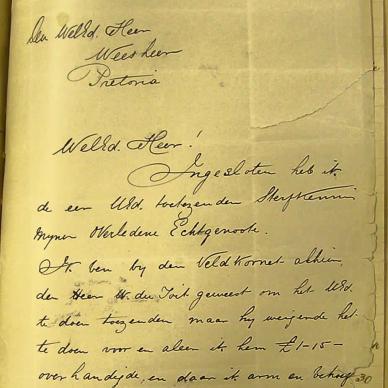 Den WelEd. Heer
Weesheer
Pretoria
WelEd. Heer!
Ingesloten heb ik
de eer UEd. toetezenden Sterfkennis
mijner Overledene Echtgenoote.
Ik ben by den Veldkornet alhier,
den Heer W. du Toit geweest om het UEd.
te doen toezenden maar hy weigerde het
te doen voor en aleer ik hem £1-15-
overhandigde, en daar ik arm en behoef
30